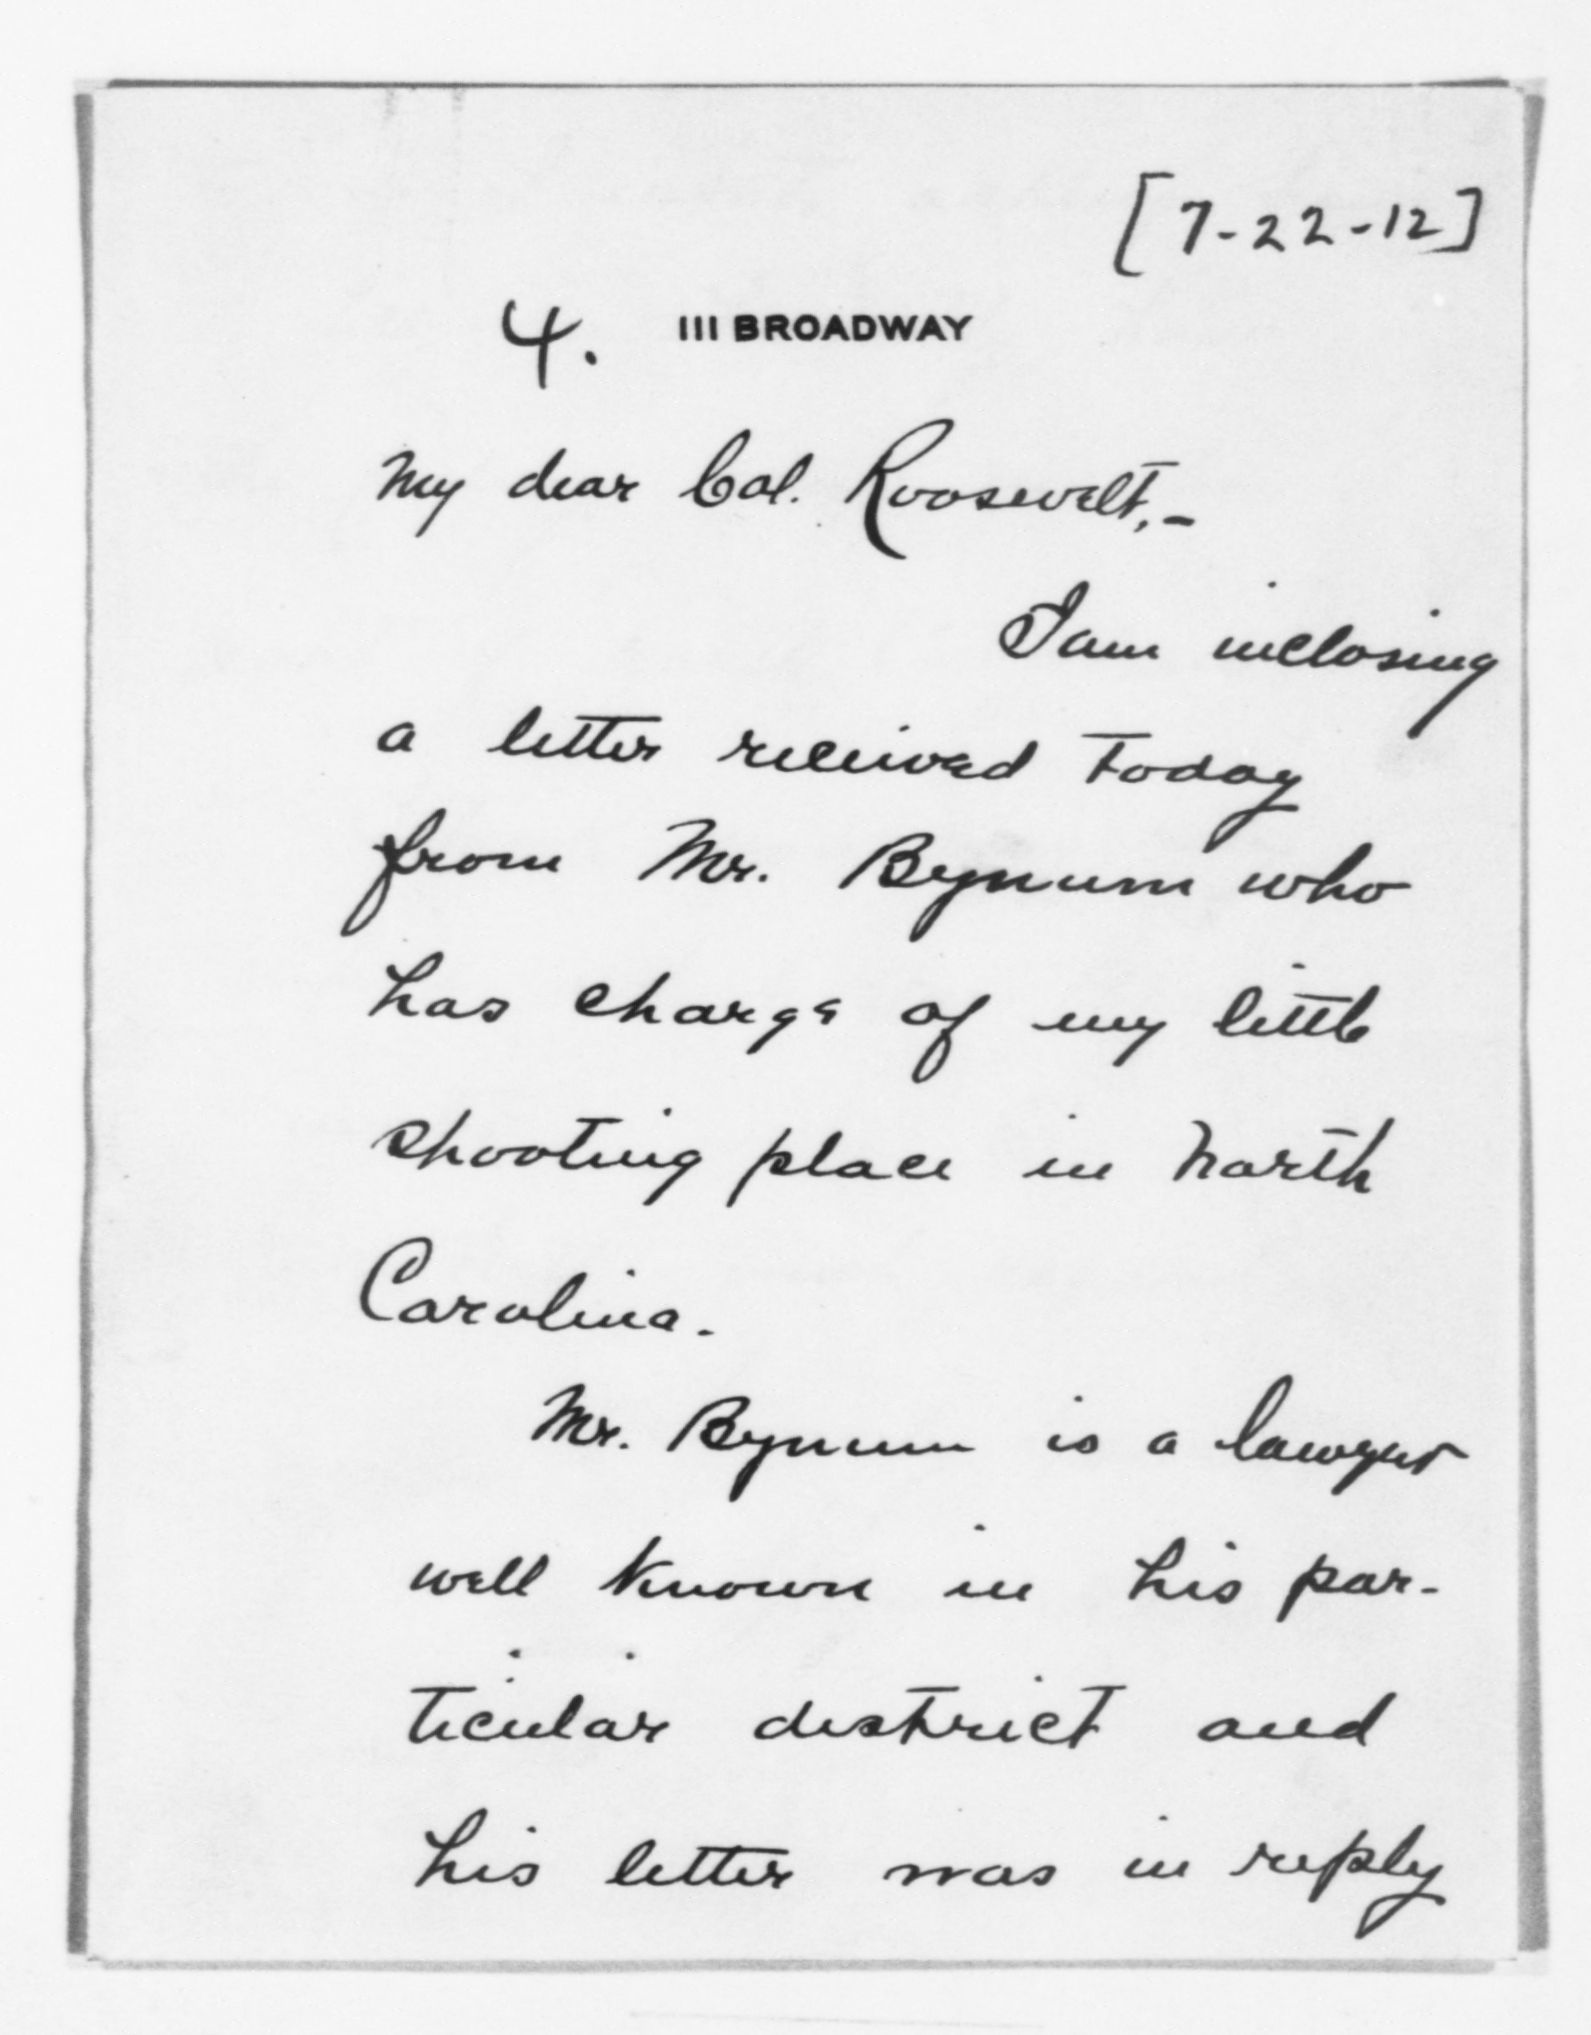 [7-22-12]
4. 111 BROADWAY
My dear Col. Roosevelt,-
I am inclosing
a letter received today
from Mr. Bynum who
has charge of my little
shooting place in North
Carolina.
Mr. Bynum is a lawyer
well known in his par-
ticular district and
his letter was in reply